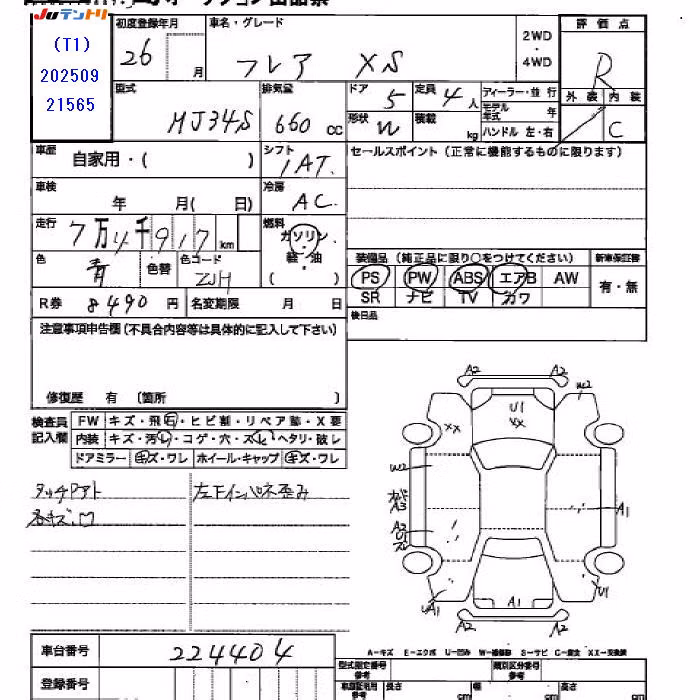 Juテントリ
(T1)
202509
21565
初度登録年月
26 月
車名・グレード
フレア XS
2WD
・
4WD
評価点
R
外装 内装
C
型式
MJ34S
排気量
660 cc
ドア
5
定員
4人
形状
W
積載
kg
ディーラー・並行
モデル年式 年
ハンドル 左・右
車歴
自家用・( )
シフト
IAT.
セールスポイント(正常に機能するものに限ります)
車検
年 月( 日)
冷房
AC
走行
7万4千917km
燃料
ガソリン
・
軽・油
色
青
色替
色コード
ZJH
装備品(純正品に限り○をつけてください)
新車保証書
PS PW ABS エアB AW
SR ナビ TV カワ
有・無
R券 8490円
名変期限 月 日
後日品
注意事項申告欄(不具合内容等は具体的に記入して下さい)
修復歴 有 〔箇所 〕
検査員
記入欄
FW キズ・飛石・ヒビ割・リペア跡・X要
内装 キズ・汚れ・コゲ・穴・スレ・ヘタリ・破レ
ドアミラー キズ・ワレ ホイール・キャップ キズ・ワレ
タッチアト
各キズ凹
左下インパネ歪み
A2 A2
W2
U1
XX
XX
W2
A3
A2
U1
A1
A1
A1
U1
A2 A2
A-キズ E-エクボ U-凹み W-補修跡 S-サビ C-腐食 XX-交換済
車台番号
224404
登録番号
型式指定番号
参考
類別区分番号
参考
車庫証明用
参考
長さ
cm
幅
cm
高さ
cm